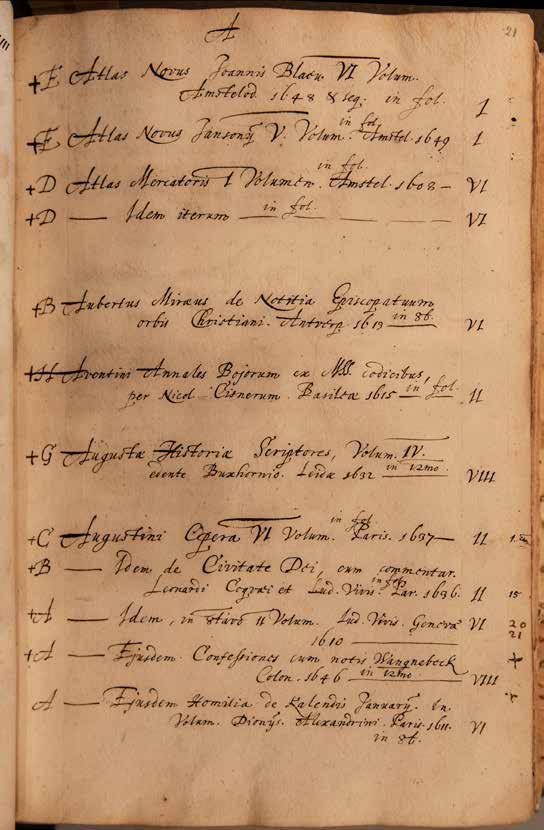 21
A
+E Atlas Novus Joannis Blaeu VI Volum.
Amstelod. 1648 & seq; in fol. I
+E Atlas Novus Jansonij V. Volum. in fol. Amstel. 1649 I
+D Atlas Mercatoris I Volumen. in fol. Amstel. 1608 — VI
+D — Idem iterum — in fol. — VI
+B Aubertus Miræus de Notitia Episcopatuum
orbis Christiani. Antverp. 1613 in 8o. VI
+H Aventini Annales Bojorum ex Mss. codicibus,
per Nicol. Cisnerum. Basileæ 1615 — in fol. II
+G Augustæ Historiæ Scriptores, Volum. IV.
edente Buxhornio. Leidæ 1632 in 12mo. VIII
+C Augustini Opera VI Volum. in fol. Paris. 1637 — II
+B — Idem de Civitate Dei, cum commentar.
Leonardi Coquæi et Lud. Vivis. in fol. Par. 1636. II 15
+A — Idem, in octavo II Volum. Lud. Vivis. Genevæ VI 20
1610 — 21
+A — Ejusdem Confessiones cum notis Wangnebeck
Colon. 1646 in 12mo. VIII
A — Ejusdem Homilia de Kalendis Januarij. In
Volum. Dionys. Alexandrini. Paris. 1611. VI
in 8o.